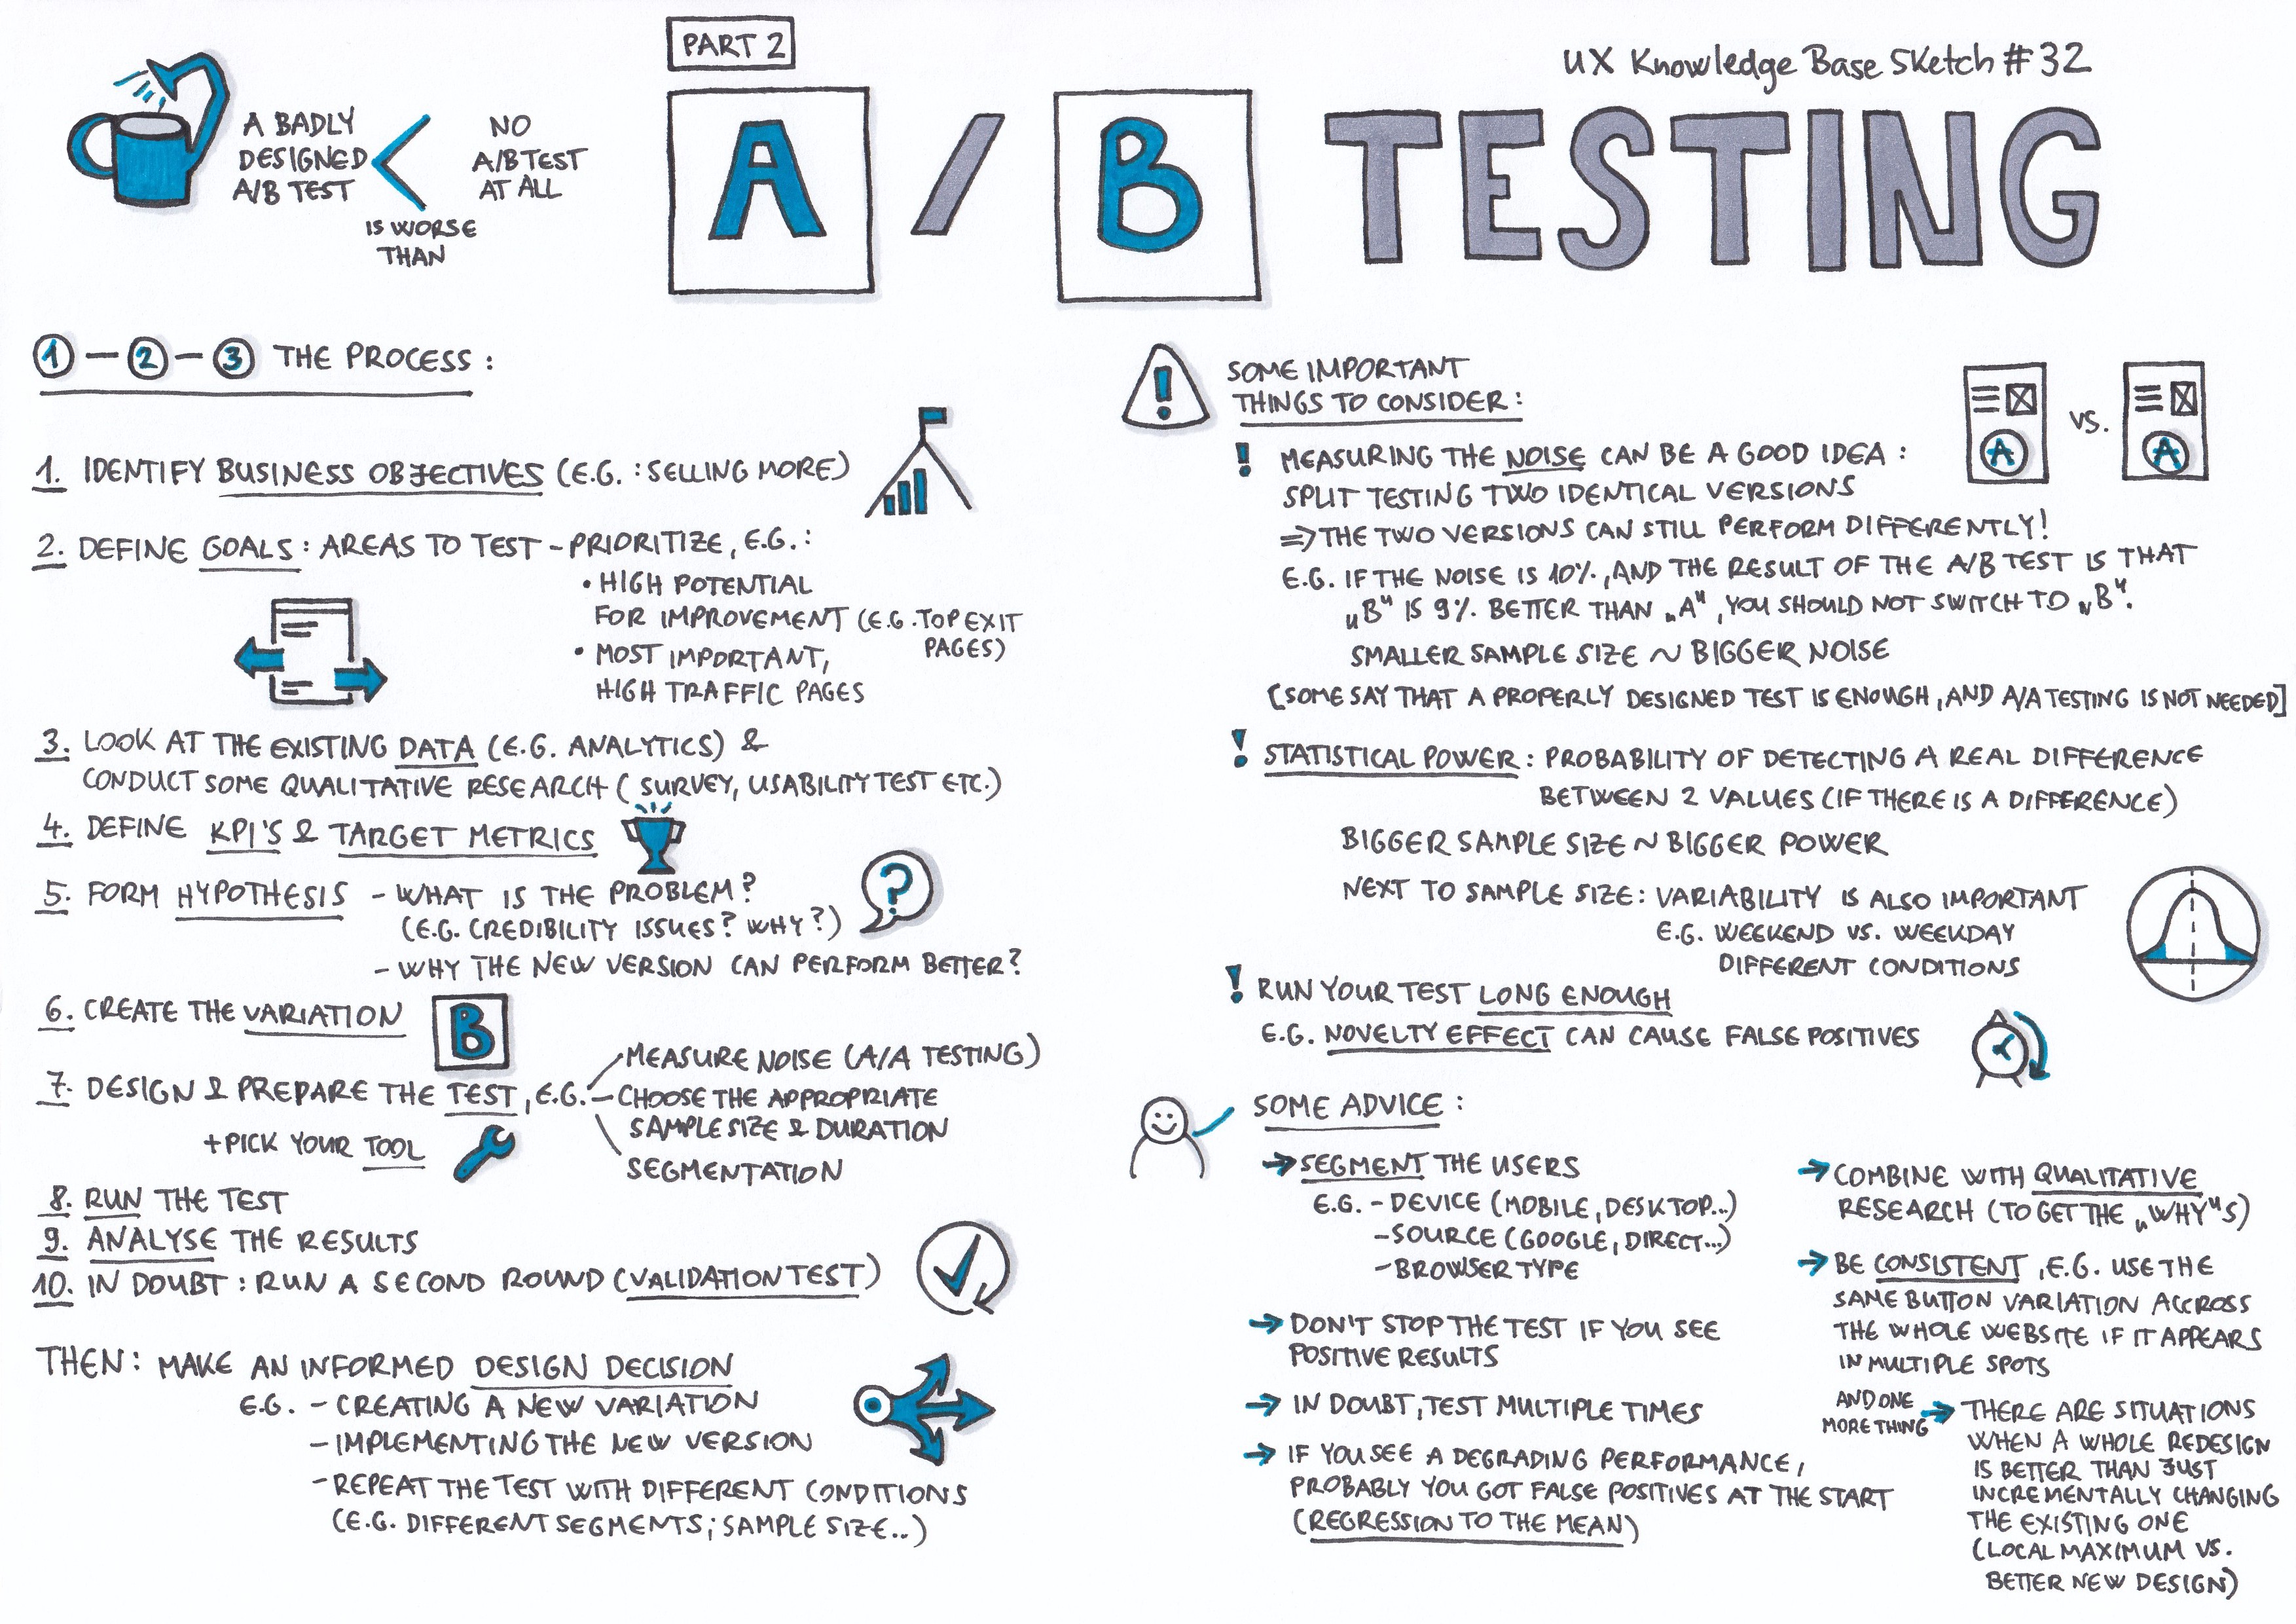 PART 2
UX Knowledge Base Sketch #32
A BADLY
DESIGNED
A/B TEST
<
IS WORSE
THAN
NO
A/B TEST
AT ALL
A / B TESTING
1 – 2 – 3 THE PROCESS:
1. IDENTIFY BUSINESS OBJECTIVES (E.G.: SELLING MORE)
2. DEFINE GOALS: AREAS TO TEST – PRIORITIZE, E.G.:
• HIGH POTENTIAL
FOR IMPROVEMENT (E.G. TOP EXIT
PAGES)
• MOST IMPORTANT,
HIGH TRAFFIC PAGES
3. LOOK AT THE EXISTING DATA (E.G. ANALYTICS) &
CONDUCT SOME QUALITATIVE RESEARCH (SURVEY, USABILITY TEST ETC.)
4. DEFINE KPI'S & TARGET METRICS
5. FORM HYPOTHESIS – WHAT IS THE PROBLEM?
(E.G. CREDIBILITY ISSUES? WHY?)
– WHY THE NEW VERSION CAN PERFORM BETTER?
?
6. CREATE THE VARIATION
B
7. DESIGN & PREPARE THE TEST, E.G.
MEASURE NOISE (A/A TESTING)
– CHOOSE THE APPROPRIATE
SAMPLE SIZE & DURATION
SEGMENTATION
+ PICK YOUR TOOL
8. RUN THE TEST
9. ANALYSE THE RESULTS
10. IN DOUBT: RUN A SECOND ROUND (VALIDATION TEST)
THEN: MAKE AN INFORMED DESIGN DECISION
E.G. – CREATING A NEW VARIATION
– IMPLEMENTING THE NEW VERSION
– REPEAT THE TEST WITH DIFFERENT CONDITIONS
(E.G. DIFFERENT SEGMENTS; SAMPLE SIZE..)
! SOME IMPORTANT
THINGS TO CONSIDER:
A VS. A
! MEASURING THE NOISE CAN BE A GOOD IDEA:
SPLIT TESTING TWO IDENTICAL VERSIONS
=> THE TWO VERSIONS CAN STILL PERFORM DIFFERENTLY!
E.G. IF THE NOISE IS 10%, AND THE RESULT OF THE A/B TEST IS THAT
„B" IS 9% BETTER THAN „A", YOU SHOULD NOT SWITCH TO „B".
SMALLER SAMPLE SIZE ~ BIGGER NOISE
[SOME SAY THAT A PROPERLY DESIGNED TEST IS ENOUGH, AND A/A TESTING IS NOT NEEDED]
! STATISTICAL POWER: PROBABILITY OF DETECTING A REAL DIFFERENCE
BETWEEN 2 VALUES (IF THERE IS A DIFFERENCE)
BIGGER SAMPLE SIZE ~ BIGGER POWER
NEXT TO SAMPLE SIZE: VARIABILITY IS ALSO IMPORTANT
E.G. WEEKEND VS. WEEKDAY
DIFFERENT CONDITIONS
! RUN YOUR TEST LONG ENOUGH
E.G. NOVELTY EFFECT CAN CAUSE FALSE POSITIVES
SOME ADVICE:
→ SEGMENT THE USERS
E.G. – DEVICE (MOBILE, DESKTOP...)
– SOURCE (GOOGLE, DIRECT...)
– BROWSER TYPE
→ DON'T STOP THE TEST IF YOU SEE
POSITIVE RESULTS
→ IN DOUBT, TEST MULTIPLE TIMES
→ IF YOU SEE A DEGRADING PERFORMANCE,
PROBABLY YOU GOT FALSE POSITIVES AT THE START
(REGRESSION TO THE MEAN)
→ COMBINE WITH QUALITATIVE
RESEARCH (TO GET THE „WHY"S)
→ BE CONSISTENT, E.G. USE THE
SAME BUTTON VARIATION ACCROSS
THE WHOLE WEBSITE IF IT APPEARS
IN MULTIPLE SPOTS
AND ONE
MORE THING
→ THERE ARE SITUATIONS
WHEN A WHOLE REDESIGN
IS BETTER THAN JUST
INCREMENTALLY CHANGING
THE EXISTING ONE
(LOCAL MAXIMUM VS.
BETTER NEW DESIGN)